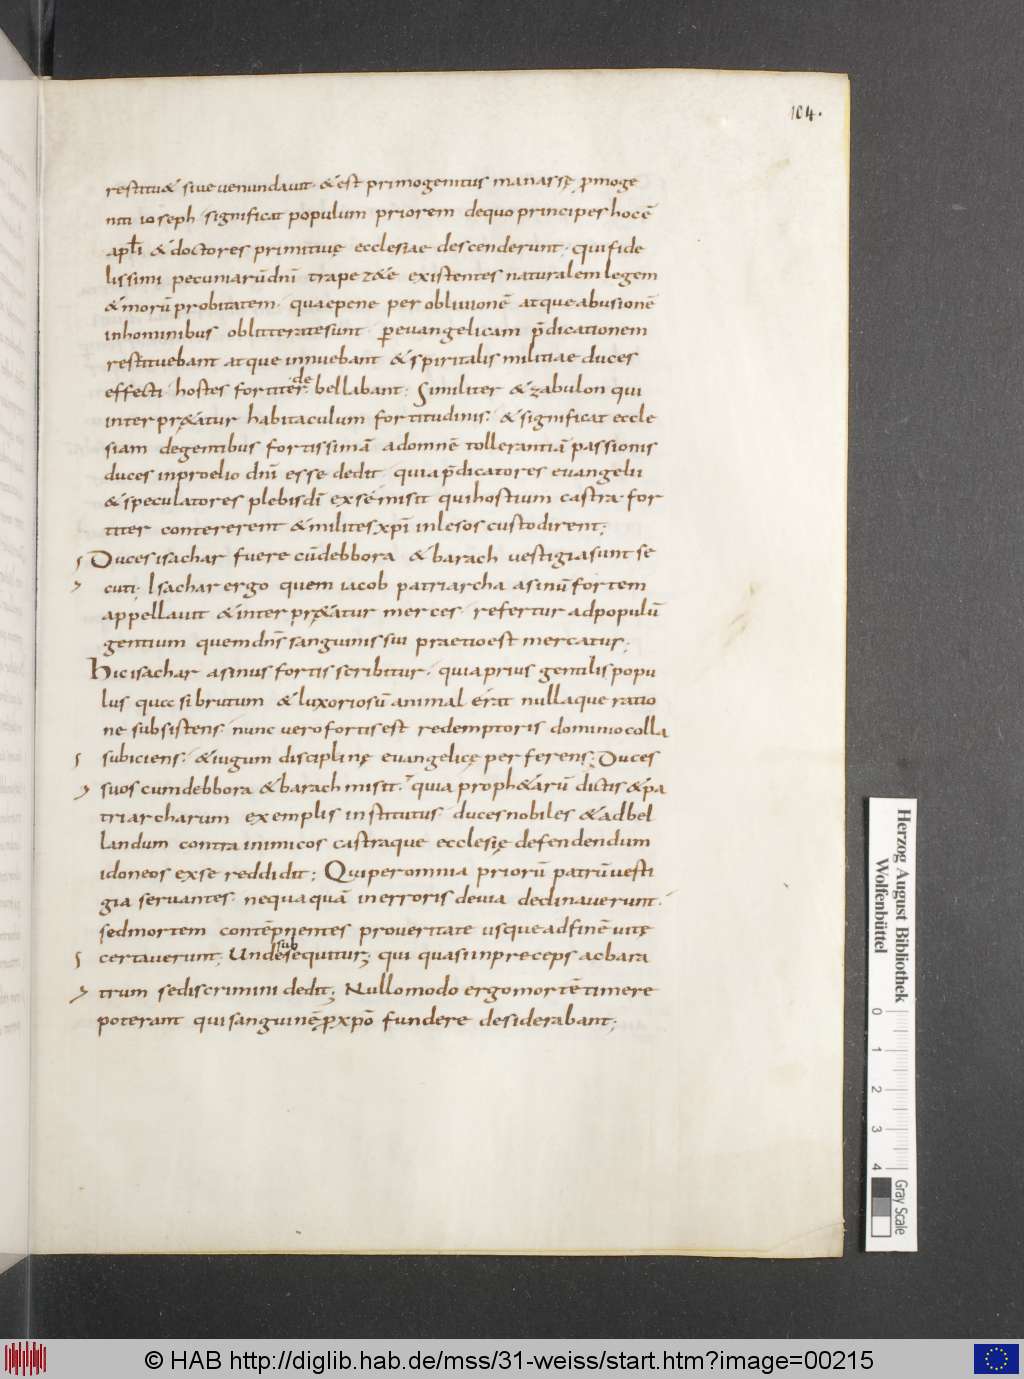 104.
restitu& siue uenundauit· & est primogenitus manassę p̱moge
niti ioseph· significat populum priorem de quo principes hoc ē
apl̄i & doctores primitiuę ecclesiae descenderunt· qui fide
lissimi pecuniarū dn̄i trapez&e existentes naturalem legem
& morū probitatem· quae pene per obliuionē atque abusionē
in hominibus oblitterate sunt· ꝑ euangelicam p̄dicationem
restituebant atque innuebant & spiritalis militiae duces
effecti· hostes fortiter debellabant; Similiter & zabulon qui
interpr&atur habitaculum fortitudinis· & significat eccle
siam degentibus fortissimā ad omnē tollerantiā passionis
duces in proelio dn̄i esse dedit· quia p̄dicatores euangelii
& speculatores plebis dī ex se misit qui hostium castra for
titer contererent & milites xp̄i inlesos custodirent;
S Duces isachar fuere cū debbora & barach uestigia sunt se
cuti; Isachar ergo quem iacob patriarcha asinū fortem
appellauit & interpr&atur merces· refertur ad populū
gentium quem dn̄s sanguinis sui praetio est mercatur;
Hic isachar asinus fortis scribitur· quia prius gentilis popu
lus quasi brutum & luxoriosū animal erat nullaque ratio
ne subsistens· nunc uero fortis est redemptoris dominio colla
S subiciens· & iugum disciplinę euangelicę perferens; Duces
suos cum debbora & barach misit· quia proph&arū dictis & pa
triarcharum exemplis institutus· duces nobiles & ad bel
landum contra inimicos castraque ecclesię defendendum
idoneos ex se reddidit; Qui per omnia priorū patrū uesti
gia seruantes· nequaquā in erroris deuia declinauerunt·
sed mortem contēpnentes pro ueritate usque ad finē uitę
S certauerunt; Unde subsequitur; qui quasi in preceps ac bara
trum se discrimini dedit; Nullo modo ergo mortē timere
poterant qui sanguinē p̱ xp̄o fundere desiderabant;
Herzog August Bibliothek
Wolfenbüttel
0 1 2 3 4
Gray Scale
© HAB http://diglib.hab.de/mss/31-weiss/start.htm?image=00215